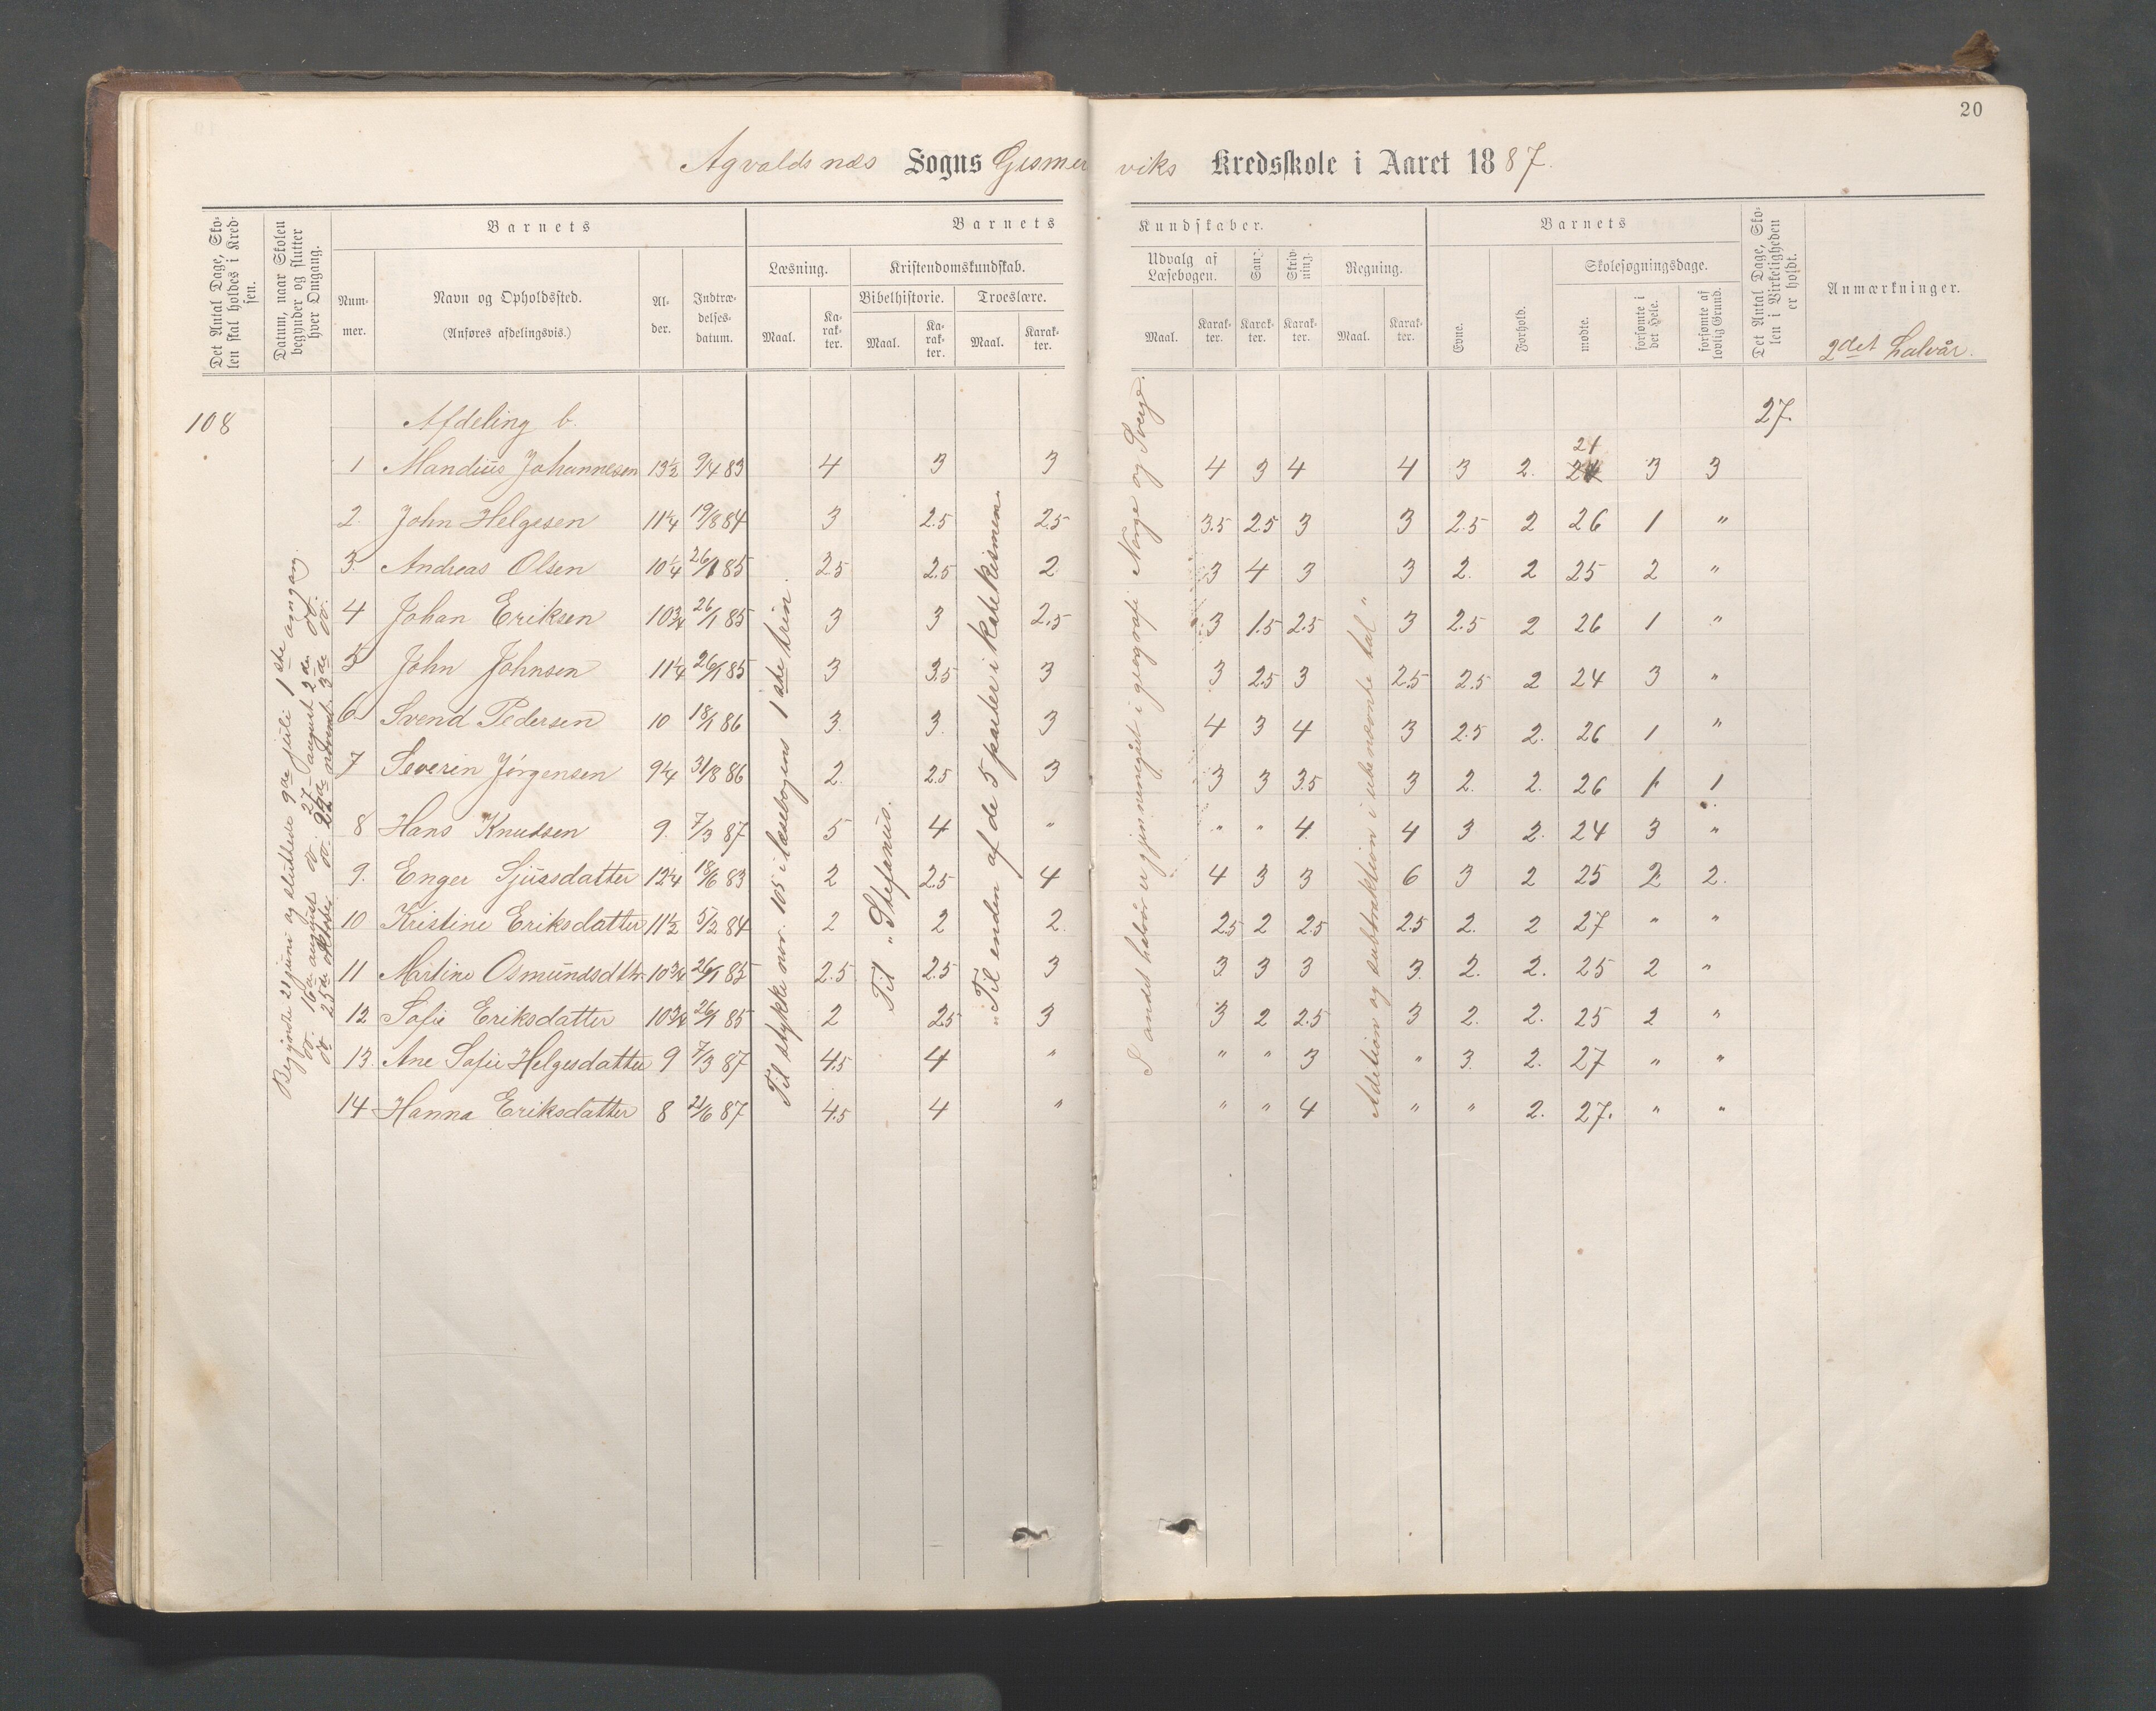 20
Agvaldsnæs Sogns Gismerviks Kredsskole i Aaret 1887.
Det Antal Dage, Skolen skal holdes i Kredsen.
Datum, naar Skolen begynder og slutter hver Omgang.
Barnets
Nummer.
Navn og Opholdssted.
(Anføres afdelingsvis.)
Alder.
Indtrædelsesdatum.
Barnets Kundskaber.
Læsning.
Maal.
Karakter.
Kristendomskundskab.
Bibelhistorie.
Maal.
Karakter.
Troeslære.
Maal.
Karakter.
Udvalg af Læsebogen.
Maal.
Karakter.
Sang.
Karakter.
Skrivning.
Karakter.
Regning.
Maal.
Karakter.
Barnets
Evne.
Forhold.
Skolesøgningsdage.
mødte.
forsømte i det Hele.
forsømte af lovlig Grund.
Det Antal Dage, Skolen i Virkeligheden er holdt.
Anmærkninger.
2det halvår.
108
Afdeling b.
27.
1 Mandius Johannesen 13½ 9/4 83 4 3 3 4 3 4 4 3 2. 21 3 3
2. John Helgesen 11¼ 19/8 84 3 2.5 2.5 3.5 2.5 3 3 2.5 2 26 1 "
3. Andreas Olsen 10¼ 26/1 85 2.5 2.5 2 3 4 3 3 2. 2 25 2 "
4 Johan Eriksen 10¾ 26/1 85 3 3 2.5 3 1.5 2.5 3 2.5 2 26 1 "
5 John Johnsen 11¼ 26/1 85 3 3.5 3 3 2.5 3 2.5 2.5 2 24 3 "
6. Svend Pedersen 10 18/1 86 3. 3. 3 4 3 4 3 2.5 2. 26 1 "
7 Severin Jörgensen 9¼ 31/8 86 2. 2.5 3 3 3 3.5 3 2. 2. 26 1 1
8 Hans Knudsen 9. 7/3 87 5 4 " " " 4. 4 3 2. 24 3 "
9. Enger Sjursdatter 12¼ 18/6 83 2 2.5 4 4 3 3 6 3 2 25 2 2.
10 Kristine Eriksdatter 11½ 5/2 84 2 2 2. 2.5 2 2.5 2.5 2. 2 27 " "
11 Martine Osmundsdtr 10¾ 26/1 85 2.5 2.5 3 3 3 3 3. 2. 2. 25 2 "
12 Sofie Eriksdatter 10¾ 26/1 85 2 2.5 3 3 2 2.5 3 2. 2. 25 2 "
13. Ane Sofie Helgesdatter 9 7/3 87 4.5 4 " " " 3 " 3. 2. 27 " "
14 Hanna Eriksdatter 8 21/6 87 4.5 4 " " " 4 " " 2. 27. " "
Begyndte 21 juni og sluttede 9de juli 1ste omgang.
do. 16de august do. 27 august 2den do.
do 25de oktober do. novemb. 3de do.
Til stykke nr. 105 i læsebogens 1ste trin.
Til "Stefanus.
"Til enden af de 5 parter i katekismen.
I andet halvår er gjennemgået i geografi Norge og Sverge.
Adition og subtraktion i ubenævnte tal"